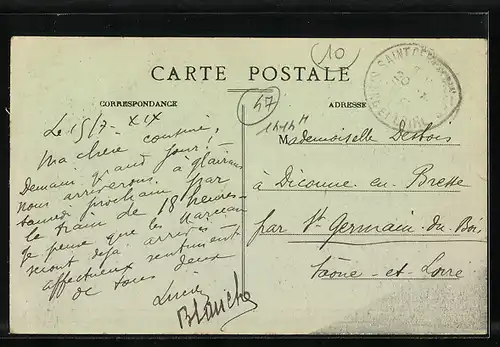 10
CARTE POSTALE
CORRESPONDANCE
ADRESSE
47
Le 15/7 - XIX
Ma chère cousine,
Demain, grand jour!
nous arriverons à
samedi prochain par
le train de 18 heures-
Je pense que les Marceau
seront déjà arrivés -
affectueux sentiment
de tous deux
Lucien
Blanche
Mademoiselle Desbois
à Diconne en Bresse
par St Germain du Bois
Saône-et-Loire